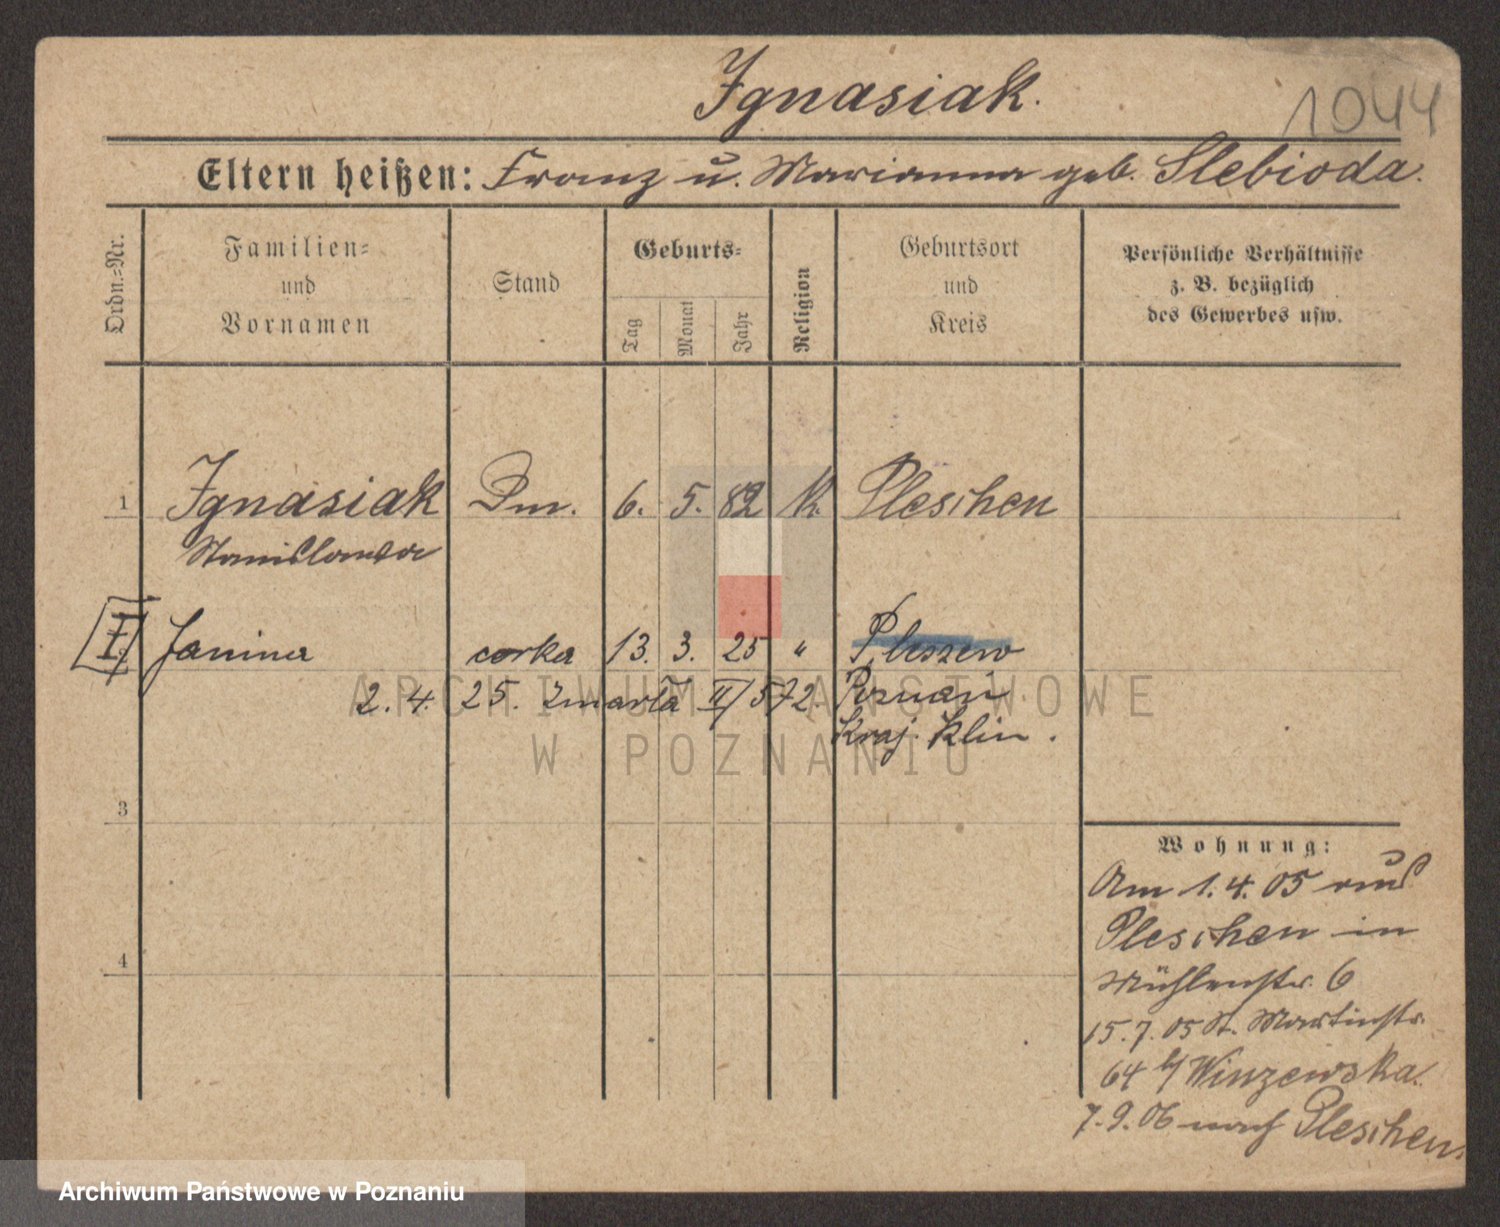 Ignasiak.
1044
Eltern heißen: Franz u. Marianna geb. Slebioda.
Ordn.-Nr.
Familien-
und
Vornamen
Stand
Geburts-
Tag
Monat
Jahr
Religion
Geburtsort
und
Kreis
Persönliche Verhältnisse
z. B. bezüglich
des Gewerbes usw.
1 Ignasiak Dm. 6. 5. 82 K. Pleschen
Stanislawa
I. Janina corka 13. 3. 25 " Pleszew
2. 4. 25. zmarła II/572. Poznań
Kraj. Klin.
3
4
Wohnung:
Am 1. 4. 05 aus
Pleschen in
Mühlenstr. 6
15. 7. 05 St. Martinstr.
64 b/ Winzewska.
7. 9. 06 nach Pleschen.
ARCHIWUM PAŃSTWOWE
W POZNANIU
Archiwum Państwowe w Poznaniu